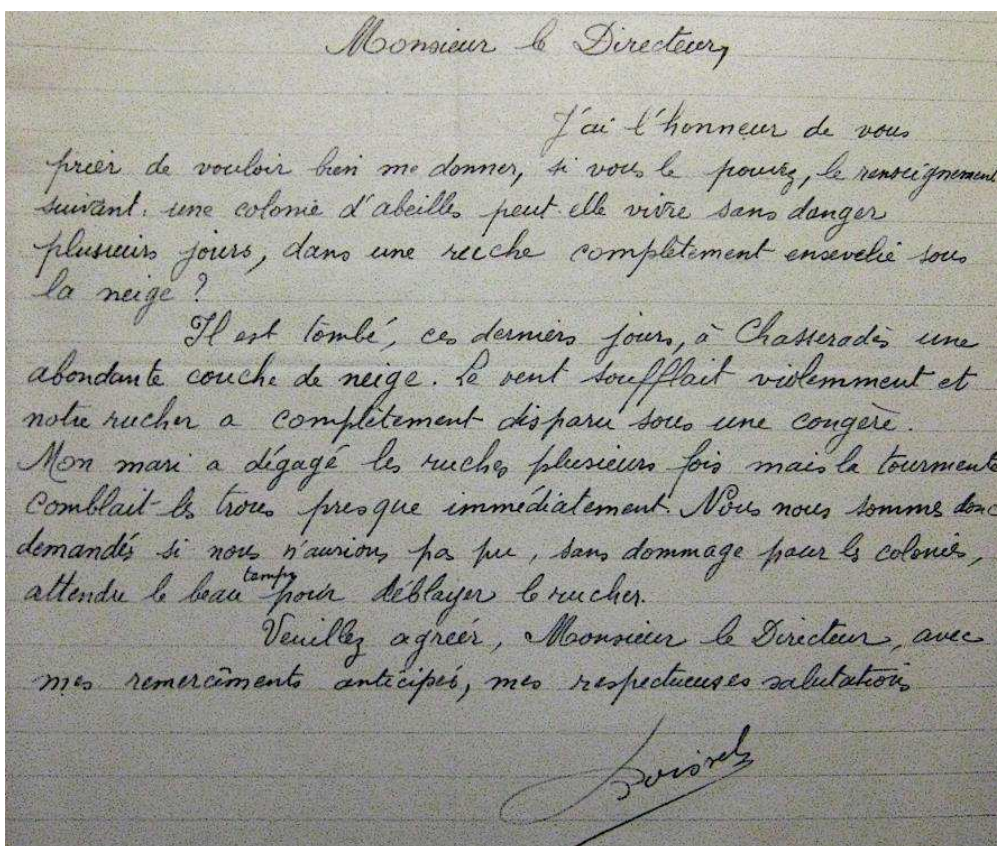 Monsieur le Directeur,
J'ai l'honneur de vous
prier de vouloir bien me donner, si vous le pouvez, le renseignement
suivant. une colonie d'abeilles peut-elle vivre sans danger
plusieurs jours, dans une ruche complètement ensevelie sous
la neige ?
Il est tombé, ces derniers jours, à Chasseradès une
abondante couche de neige. Le vent soufflait violemment et
notre rucher a complètement disparu sous une congère.
Mon mari a dégagé les ruches plusieurs fois mais la tourmente
comblait les trous presque immédiatement. Nous nous sommes donc
demandés si nous n'aurions pas pu, sans dommage pour les colonies,
attendre le beau temps pour déblayer le rucher.
Veuillez agréer, Monsieur le Directeur, avec
mes remercîments anticipés, mes respectueuses salutations